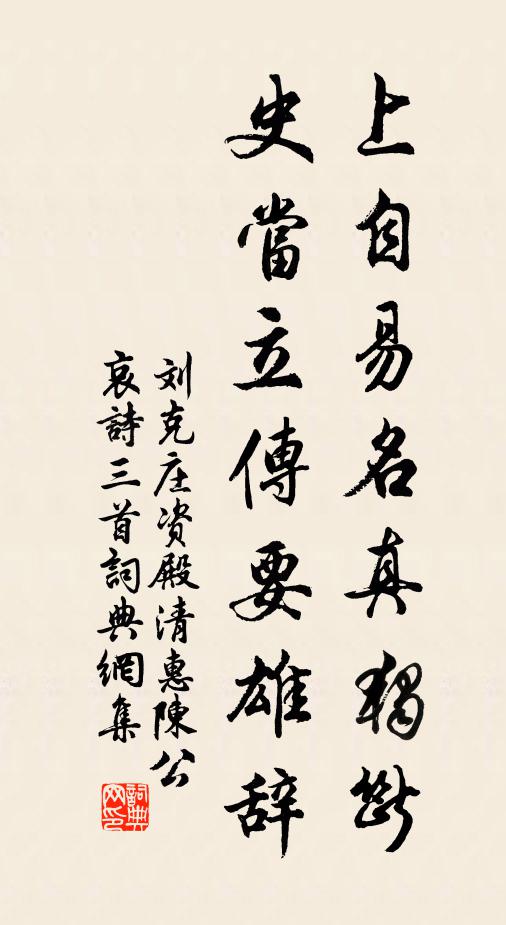 上自易名真獨斷
史當立傳要雄辞
刘克庄资殿清惠陳公
哀詩三首詞典網集
詞典网印